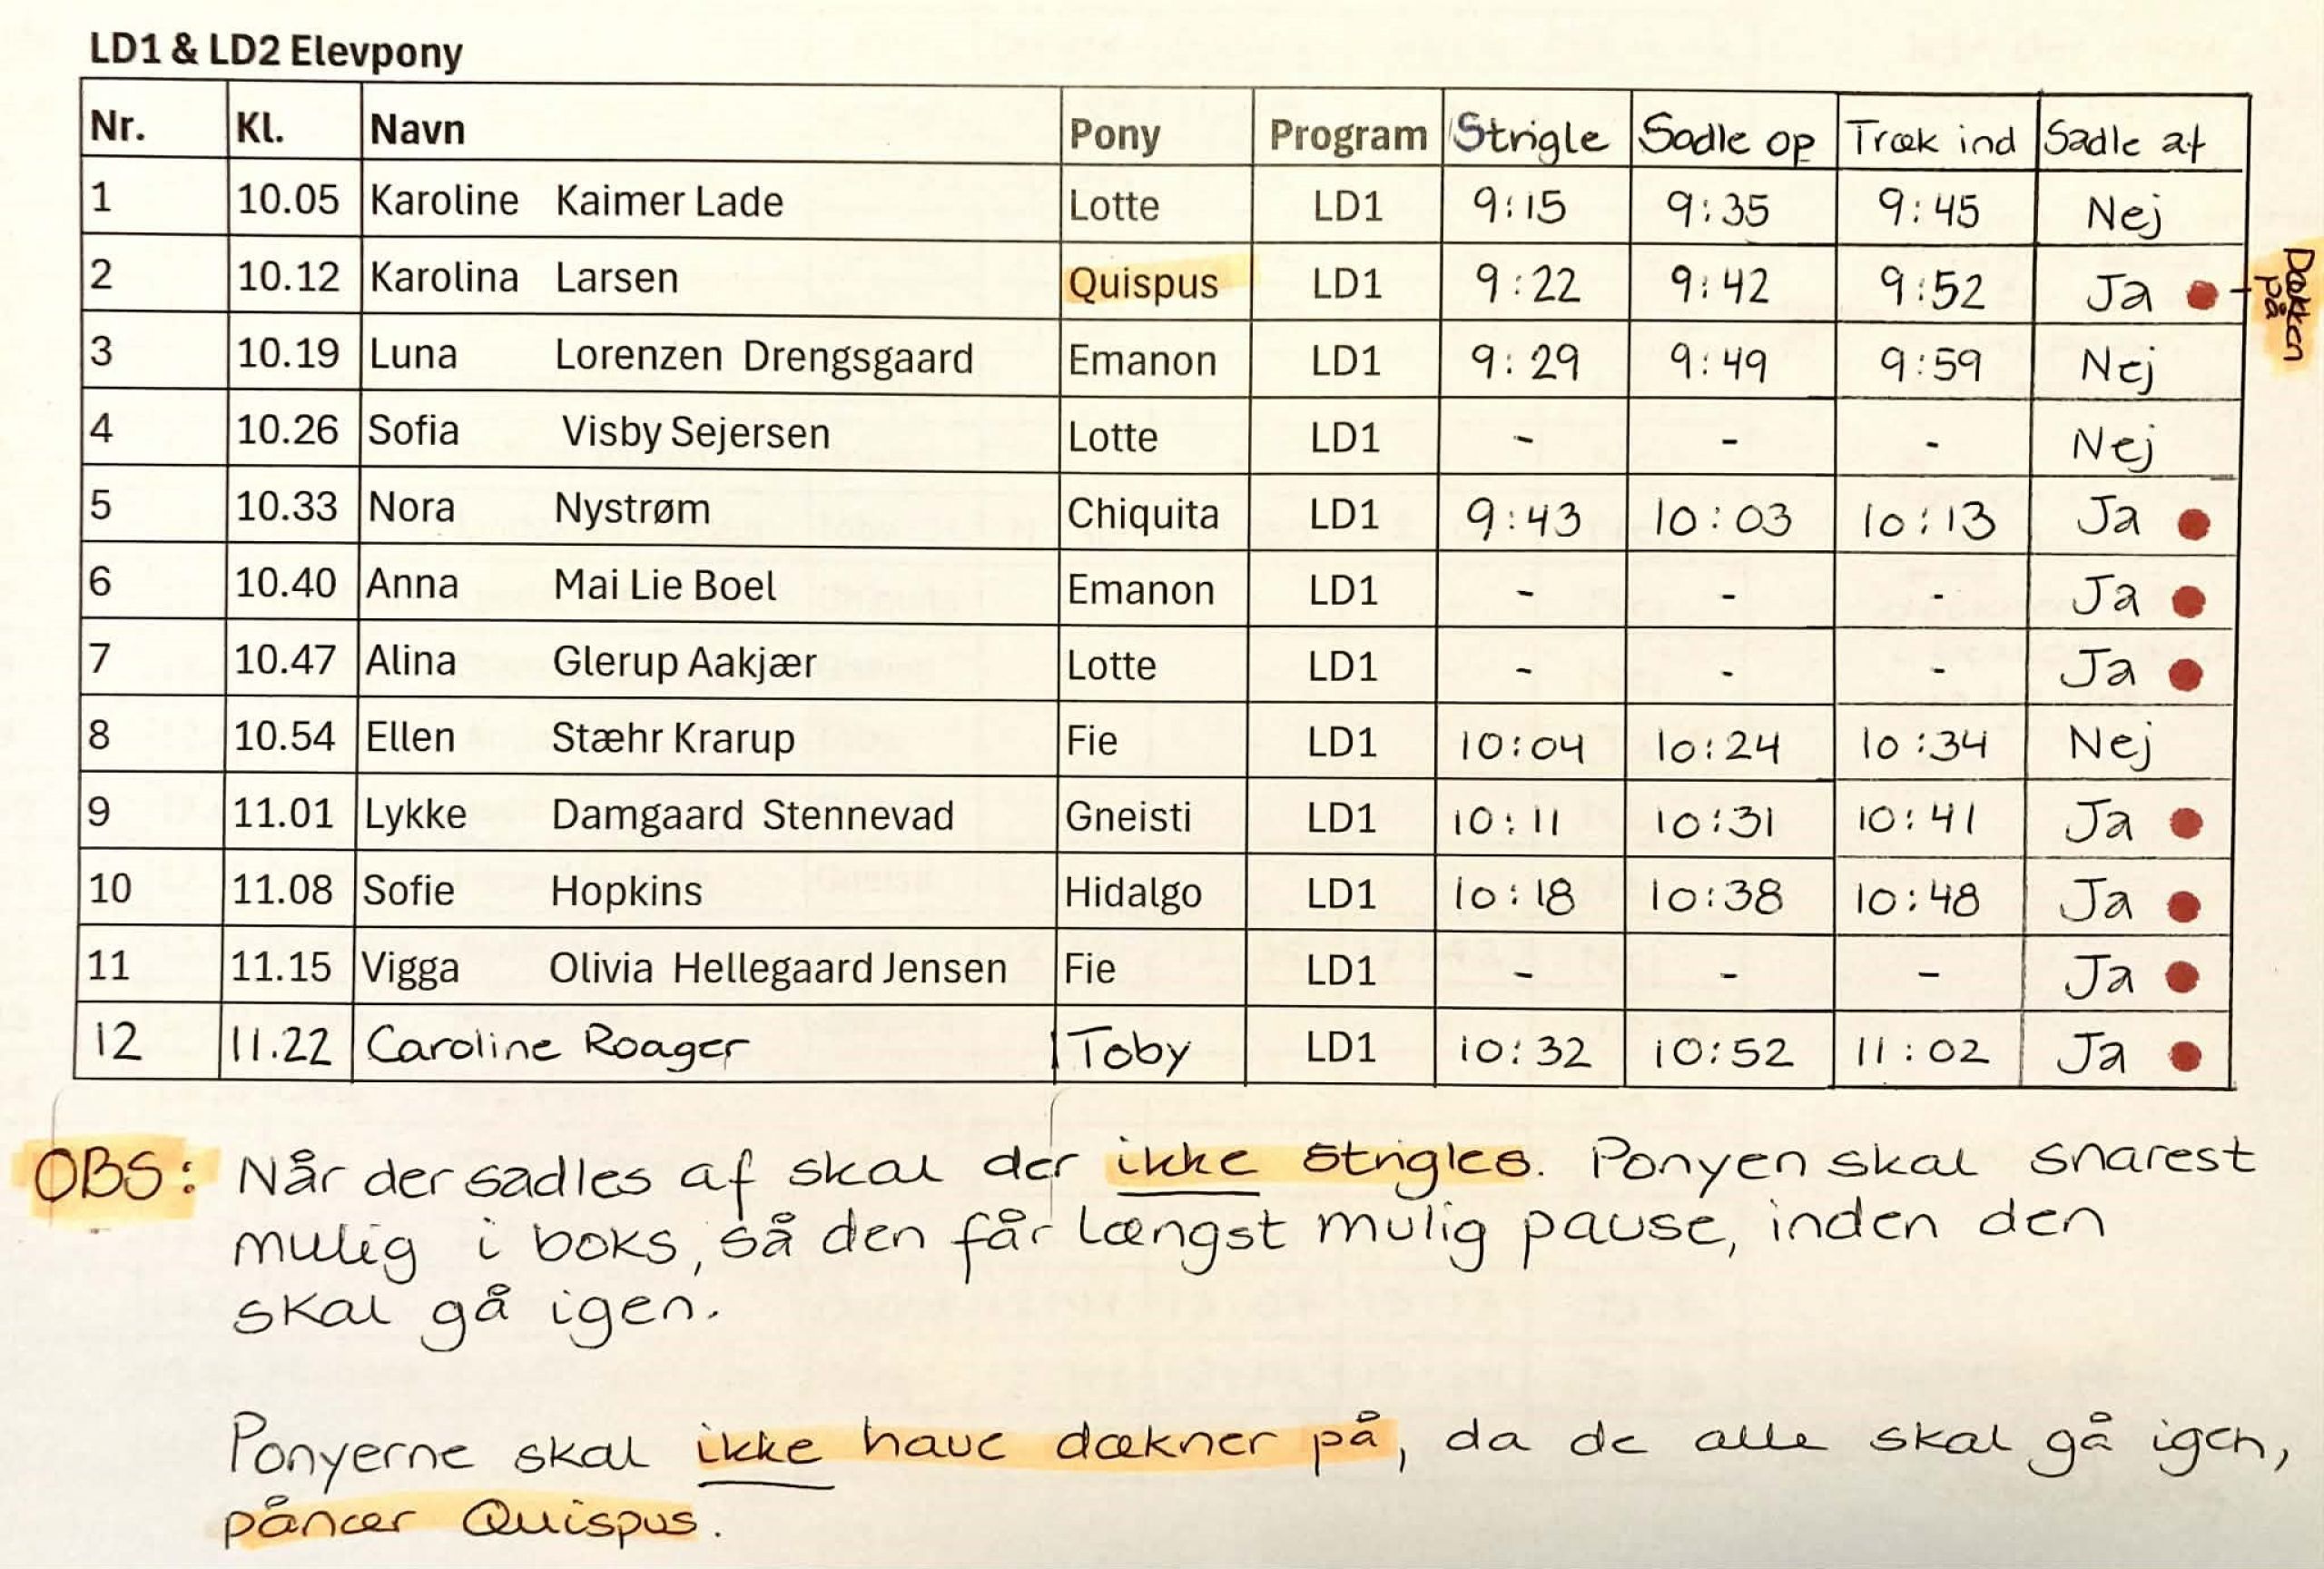 LD1 & LD2 Elevpony
Nr. Kl. Navn Pony Program Strigle Sadle op Træk ind Sadle af
1 10.05 Karoline Kaimer Lade Lotte LD1 9:15 9:35 9:45 Nej
2 10.12 Karolina Larsen Quispus LD1 9:22 9:42 9:52 Ja
Dækken
på
3 10.19 Luna Lorenzen Drengsgaard Emanon LD1 9:29 9:49 9:59 Nej
4 10.26 Sofia Visby Sejersen Lotte LD1 - - - Nej
5 10.33 Nora Nystrøm Chiquita LD1 9:43 10:03 10:13 Ja
6 10.40 Anna Mai Lie Boel Emanon LD1 - - - Ja
7 10.47 Alina Glerup Aakjær Lotte LD1 - - - Ja
8 10.54 Ellen Stæhr Krarup Fie LD1 10:04 10:24 10:34 Nej
9 11.01 Lykke Damgaard Stennevad Gneisti LD1 10:11 10:31 10:41 Ja
10 11.08 Sofie Hopkins Hidalgo LD1 10:18 10:38 10:48 Ja
11 11.15 Vigga Olivia Hellegaard Jensen Fie LD1 - - - Ja
12 11.22 Caroline Roager Toby LD1 10:32 10:52 11:02 Ja
OBS: Når der sadles af skal der ikke strigles. Ponyen skal snarest
mulig i boks, så den får længst mulig pause, inden den
skal gå igen.
Ponyerne skal ikke have dækner på, da de alle skal gå igen,
pånær Quispus.